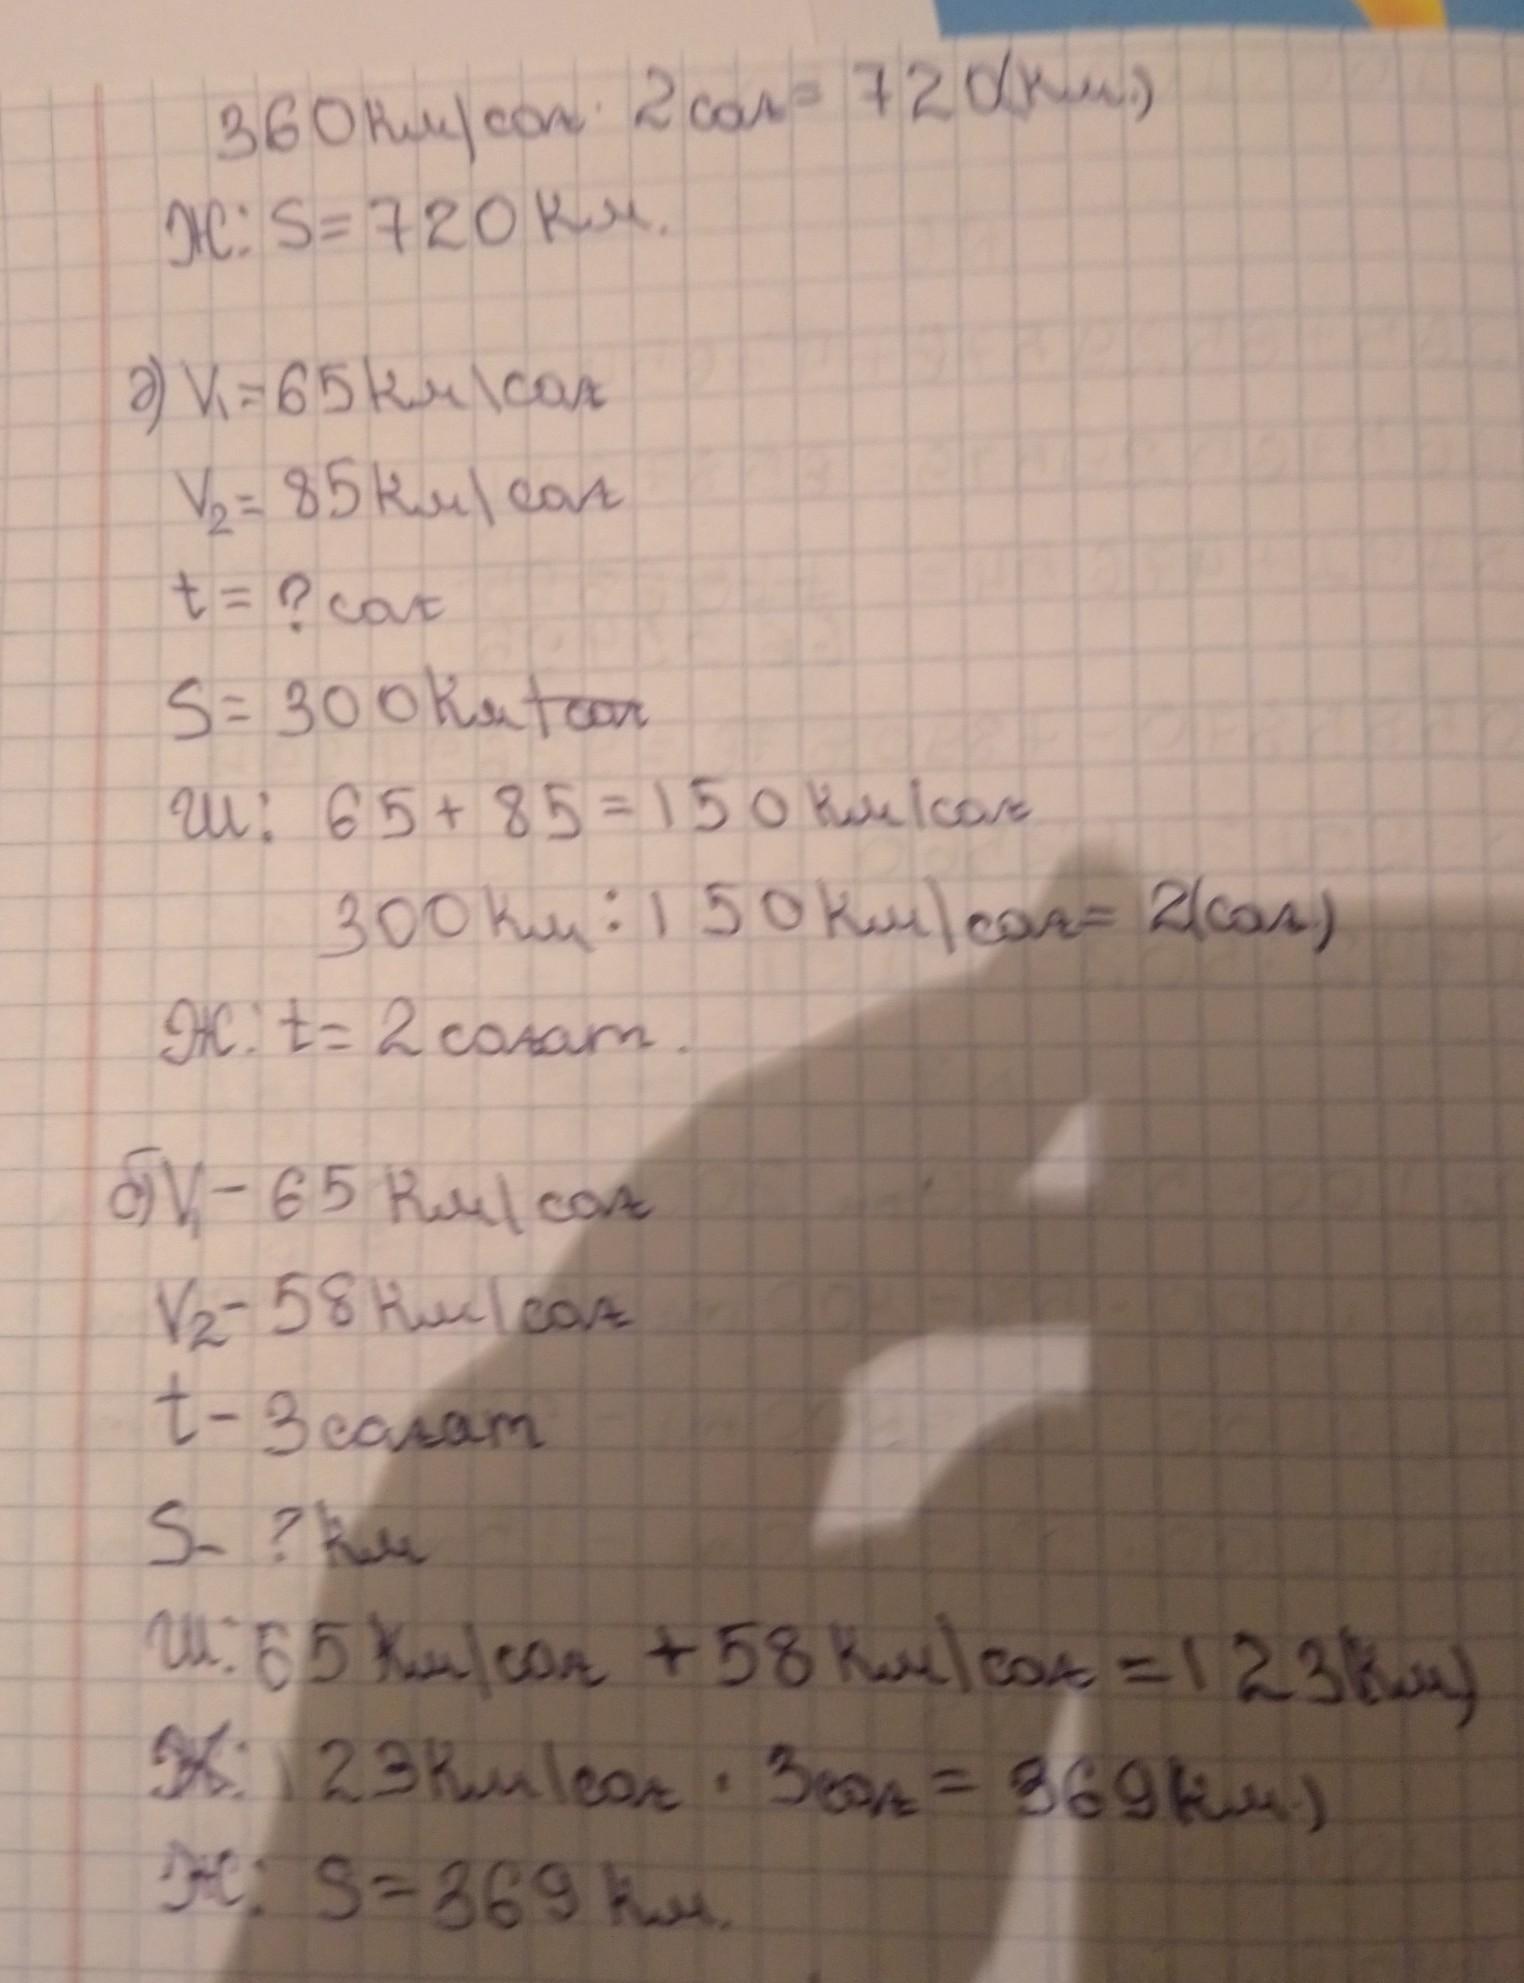 360 км/сағ · 2 сағ = 720 (км.)
Ж: S=720 км.
ә) V1=65 км\сағ
V2= 85 км\сағ
t= ? сағ
S= 300 км
Ш: 65 + 85 = 150 км/сағ
300 км : 150 км/сағ = 2 (сағ)
Ж: t= 2 сағат.
б) V1 - 65 км\сағ
V2 - 58 км/сағ
t - 3 сағат
S - ? км
Ш: 65 км/сағ + 58 км/сағ = 123 (км)
Ж: 123 км/сағ · 3 сағ = 369 км.)
Ж: S=369 км.